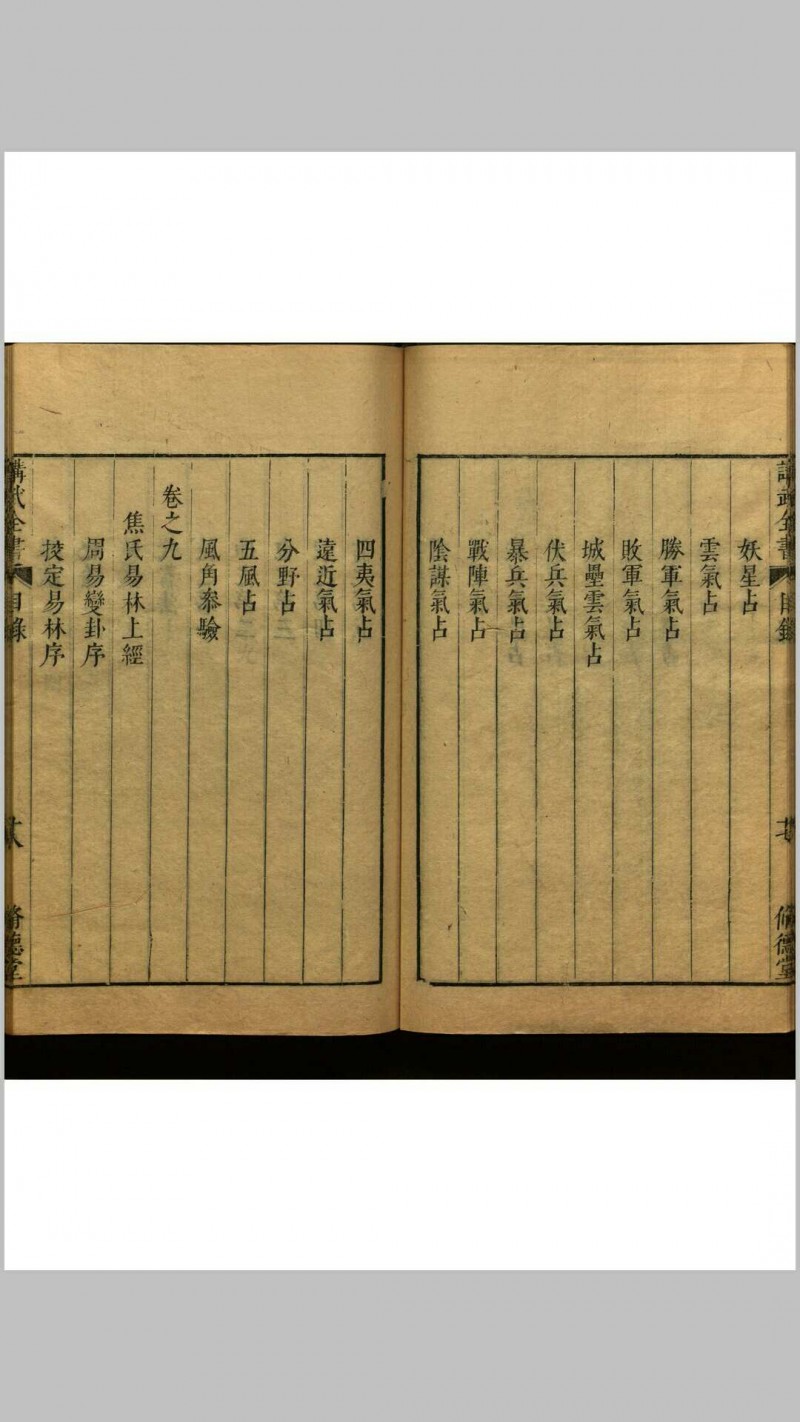 妖星占
雲氣占
勝軍氣占
敗軍氣占
城壘雲氣占
伏兵氣占
暴兵氣占
戰陣氣占
陰謀氣占
四夷氣占
遠近氣占
分野占
五風占
風角叅驗
卷之九
焦氏易林上經
周易變卦序
挍定易林序
講武全書
目錄
脩德堂
講武全書
目錄
脩德堂